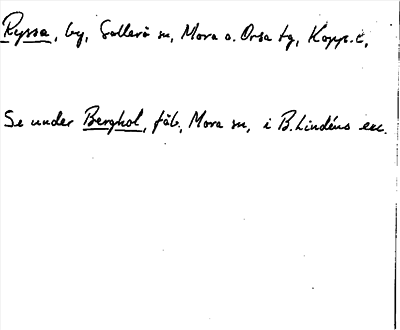 Ryssa, by, Sollerö sn, Mora o. Orsa tg, Kopp. l.
Se under Berghol, fäb., Mora sn, i B. Lindéns exc.